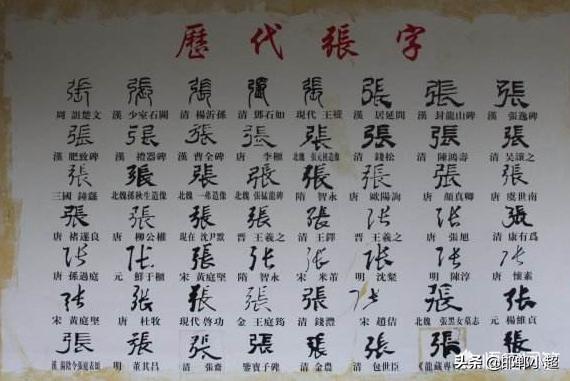 歷代張字
張 張 張 張 張 張 張 張
周 詛楚文 漢 少室石闕 清 楊沂孫 清 鄧石如 現代 王褆 漢 居延簡 漢 封龍山碑 漢
張 張 張 張 張 張 張 張
漢 肥致碑 漢 禮器碑 漢 曹全碑 唐 北魏 張元祖造像 清 錢松 清 陳鴻壽 清 吴讓之
張 張 張 張 張 張 張 張
三國 鍾繇 北魏 孫秋生造像 北魏 一弗造像 北魏 張猛龍碑 隋 智永 唐 歐陽詢 唐 顔真卿 唐 虞世南
張 張 張 張 張 張 張 張
唐 褚遂良 唐 柳公權 現在 沈尹默 晋 王羲之 清 王鐸 晋 王羲之 唐 張旭 清 康有爲
張 張 張 張 張 張 張 張
唐 孫過庭 元 鮮于樞 宋 黄庭堅 隋 智永 宋 米芾 明 沈粲 明 陳淳 唐 懷素
張 張 張 張 張 張 張 張
宋 黄庭堅 唐 杜牧 現代 啓功 金 王庭筠 清 錢灃 宋 趙佶 北魏 張黑女墓志 元 楊維貞
張 張 張 張 張 張 張 張
明 董其昌 清 爨寶子碑 清 金農 清 包世臣
头条@邯郸网超